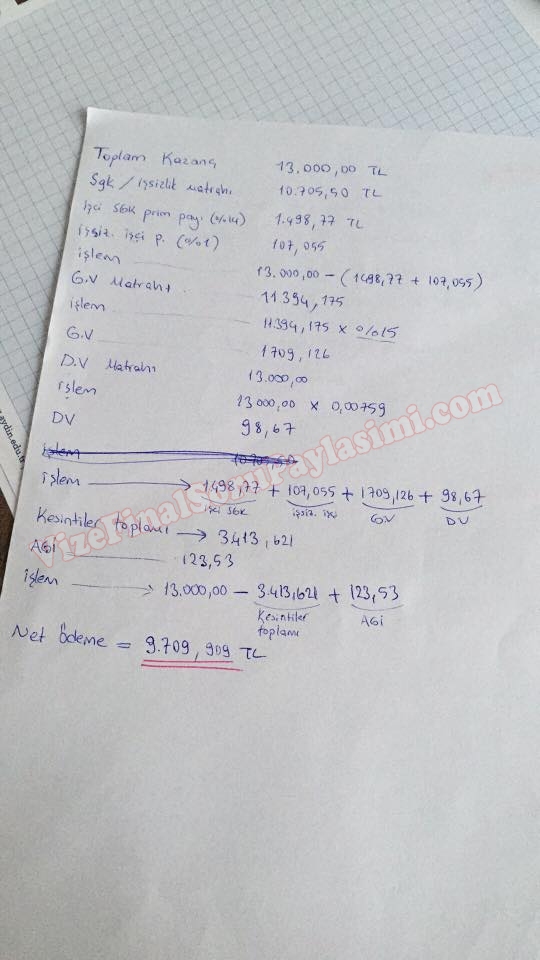 Toplam Kazanç 13.000,00 TL
Sgk / işsizlik Matrahı 10.705,50 TL
işçi SGK prim payı (%14) 1.498,77 TL
işsiz. işçi p. (%1) 107,055
işlem 13.000,00 - (1498,77 + 107,055)
G.V Matrahı 11394,175
işlem 11394,175 x %15
G.V 1709,126
D.V Matrahı 13.000,00
işlem 13000,00 x 0,00759
DV 98,67
işlem 10.705,50
işlem → 1498,77 + 107,055 + 1709,126 + 98,67
işçi SGK işsiz. işçi GV DV
Kesintiler toplamı → 3413,621
AGİ 123,53
işlem → 13.000,00 - 3.413,621 + 123,53
Kesintiler toplamı AGİ
Net Ödeme = 9.709,909 TL
VizeFinalSoruPaylasimi.com
aydin.edu.tr